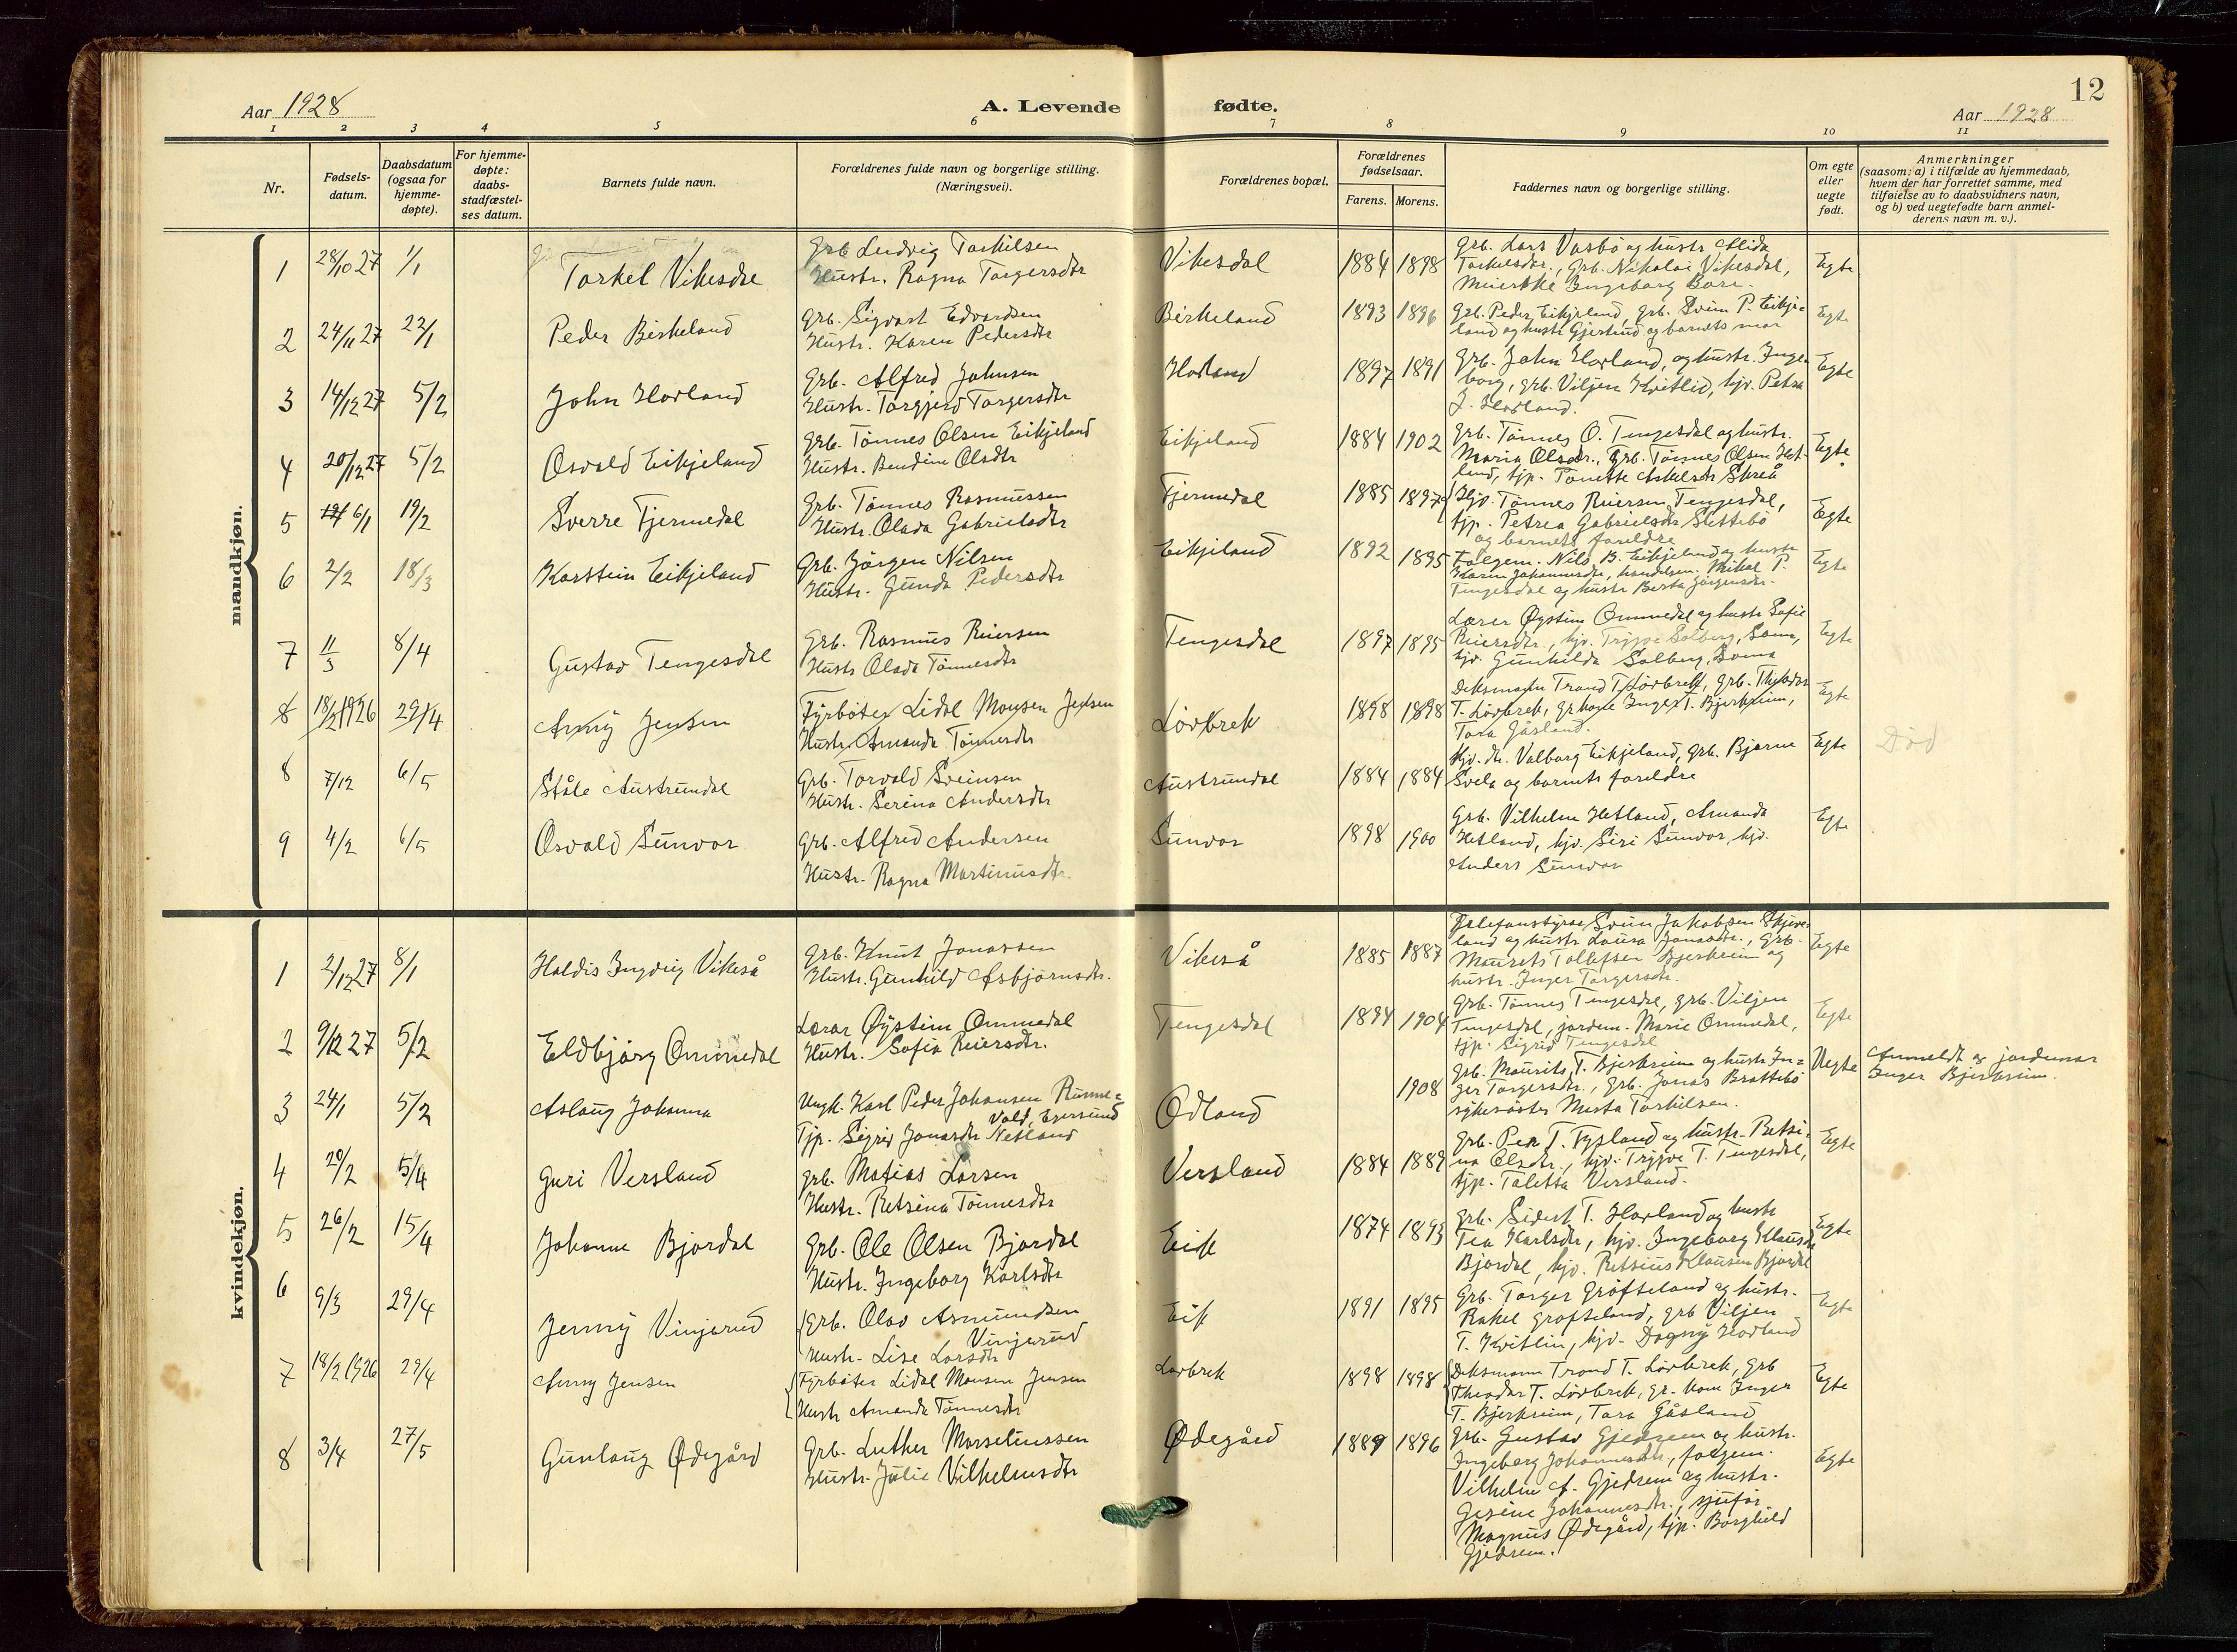 12
Aar 1928
A. Levende fødte.
Aar 1928
1 2 3 4 5 6 7 8 9 10 11
Nr.
Fødsels-
datum.
Daabsdatum
(ogsaa for
hjemme-
døpte).
For hjemme-
døpte:
daabs-
stadfæstel-
ses datum.
Barnets fulde navn.
Forældrenes fulde navn og borgerlige stilling.
(Næringsvei).
Forældrenes bopæl.
Forældrenes
fødselsaar.
Farens. Morens.
Faddernes navn og borgerlige stilling.
Om egte
eller
uegte
født.
Anmerkninger
(saasom: a) i tilfælde av hjemmedaab,
hvem der har forrettet samme, med
tilføielse av to daabsvidners navn,
og b) ved uegtefødte barn anmel-
derens navn m. v.).
mandkjøn.
1 28/10 27 1/1 Torkel Vikesdal
Grb Ludvig Torkilsen
Hustr. Ragna Torgersdtr
Vikesdal 1884 1898
Grb. Lars Vasbø og hustr Alida
Torkelsdtr., grb. Nikolai Vikesdal,
Meierske Ingeborg Bore.
Egte
2 24/11 27 22/1 Peder Birkeland
Grb. Sigvart Edvardsen
Hustr. Karen Pedersdtr
Birkeland 1893 1896
Grb. Peder Eikjeland, grb. Svein P. Eikje-
land og hustr Gjertrud og barnets mor
Egte
3 14/12 27 5/2 John Hovland
Grb. Alfred Johnsen
Hustr. Torgjerd Torgersdtr
Hovland 1897 1891
Grb. John Hovland, og hustr. Inge-
borg, grb. Viljen Kvitlid, hjv. Petra
J. Hovland.
Egte
4 20/12 27 5/2 Osvald Eikjeland
Grb. Tønnes Olsen Eikjeland
Hustr. Bendine Olsdtr
Eikjeland 1884 1902
Grb. Tønnes O. Tengesdal og hustr.
Maria Olsdtr., Grb. Tønnes Olsen Het-
land, tjp. Tonette Askelsdtr Skreå
Egte
5 6/1 19/2 Sverre Fjermedal
Grb. Tønnes Rasmussen
Hustr. Olada Gabrielsdtr
Fjermedal 1885 1897
Hjv. Tønnes Reiersen Tengesdal,
tjp. Petrea Gabrielsdtr Slettebø
og barnets foreldre
Egte
6 2/2 18/3 Karstein Eikjeland
Grb. Jørgen Nilsen
Hustr. Gunda Pedersdtr
Eikjeland 1892 1895
Folgem. Nils B. Eikjeland og hustr
Karen Johannesdtr, handelsm. Mikal P.
Tengesdal og hustr Berta Jörgensdtr.
Egte
7 11/3 8/4 Gustav Tengesdal
Grb. Rasmus Reiersen
Hustr Olada Tönnesdtr
Tengesdal 1897 1895
Lærer Øystein Ommedal og hustr Sofie
Reiersdtr., hjv. Trygve Solberg, Soma,
hjv. Gunhilda Solberg, Soma
Egte
8 18/2 1926 29/4 Anny Jensen
Fyrbøter Lidal Monsen Jensen
Hustr. Amanda Tönnesdtr
Lovbrek 1898 1898
Deksmann Trond T. Lovbrek, grb. Theodor
T. Lovbrek, gr. kone Inger T. Bjerkreim,
Tora Gåsland.
Egte
Död
8 7/12 6/5 Ståle Austrumdal
Grb. Torvald Sveinsen
Hustr. Serina Andersdtr
Austrumdal 1884 1884
Hjv. dtr. Valborg Eikjeland, grb. Bjarne
Svela og barnets foreldre
Egte
9 4/2 6/5 Osvald Sunvor
Grb. Alfred Andersen
Hustr. Ragna Martinusdtr.
Sunvor 1898 1900
Grb. Vilhelm Hetland, Amanda
Hetland, hjv. Siri Sunvor, hjv.
Anders Sunvor
Egte
kvindekjøn.
1 2/12 27 8/1 Haldis Ingveig Vikeså
Grb. Knut Jonassen
Hustr. Gunhild Asbjörnsdtr.
Vikeså 1885 1887
Telefonstyrer Svein Jakobsen Skjeve-
land og hustr Lovisa Jonasdtr., Grb.
Maurits Tollefsen Bjerkreim og
hustr. Inger Torgersdtr.
Egte
2 9/12 27 5/2 Eldbjörg Ommedal
Lærar Øystein Ommedal
Hustr. Sofie Reiersdtr.
Tengesdal 1894 1904
Grb. Tönnes Tengesdal, grb. Viljen
Tengesdal, jordem. Marie Ommedal,
tjp. Sigrid Tengesdal
Egte
3 24/1 5/2 Aslaug Johanna
Ungk. Karl Peder Johansen Rumme-
Vold, Egersund
Tjp. Sigrid Jonasdtr Netland
Odland 1908
Grb. Maurits T. Bjerkreim og hustr In-
ger Torgersdtr., grb. Jonas Brattebö
sykesöster Marta Torkilsen.
Uegte
Anmeldt af jordmor
Inger Bjerkreim.
4 20/2 15/4 Guri Versland
Grb. Matias Larsen
Hustr. Retsina Tönnesdtr
Versland 1884 1889
Grb. Per T. Fysland og hustr. Retsi-
na Olsdtr., hjv. Trygve T. Tengesdal,
tjp. Taletta Versland.
Egte
5 26/2 15/4 Johanne Bjordal
Grb. Ole Olsen Bjordal
Hustr. Ingeborg Karlsdtr
Eik 1874 1893
Grb. Sivert T. Hovland og hustr
Tea Karlsdtr, hjv. Ingeborg Klausdtr
Bjordal, hjv. Retsius Klausen Bjordal
Egte
6 9/3 29/4 Jenny Vinjerud
Grb. Olav Asmundsen
Vinjerud
Hustr. Lise Larsdtr
Eik 1891 1895
Grb. Torger Gröfteland og hustr.
Rakel Gröfteland, grb Viljen
T. Kvitlin, hjv. Dagny Hovland
Egte
7 18/2 1926 29/4 Anny Jensen
Fyrböter Lidal Monsen Jensen
Hustr Amanda Tönnesdtr
Lovbrek 1898 1898
Deksmann Trond T. Lovbrek, Grb
Theodor T. Lovbrek, gr. kone Inger
T. Bjerkreim, Tora Gåsland
Egte
8 3/4 27/5 Gunlaug Ødegård
Grb. Luther Marseliussen
Hustr. Julie Vilhelmsdtr
Ødegård 1889 1896
Grb. Gustav Gjedrem og hustr.
Ingeborg Johannesdtr., folgem.
Vilhelm A. Gjedrem og hustr.
Gesine Johannesdtr., sjufør
Magnus Ødegård, tjp. Borghild
Gjedrem.
Egte